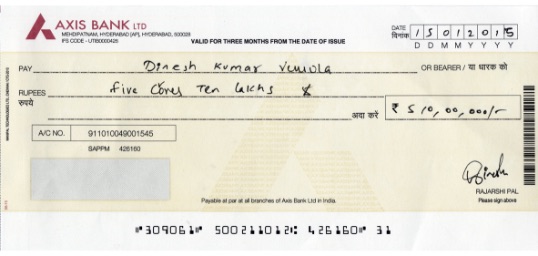 AXIS BANK LTD
MEHDIPATNAM, HYDERABAD [AP], HYDERABAD, 500028
IFS CODE - UTIB0000425
VALID FOR THREE MONTHS FROM THE DATE OF ISSUE
DATE
दिनांक 15012015
D D M M Y Y Y Y
PAY Dinesh Kumar OR BEARER / या धारक को
RUPEES Five Cores Ten Lakhs
रुपये
अदा करें ₹ 510,00,000/-
A/C NO. 911010049001545
SAPPM 426160
RAJARSHI PAL
Payable at par at all branches of Axis Bank Ltd in India.
Please sign above
"309061" 500211012: 426160" 31